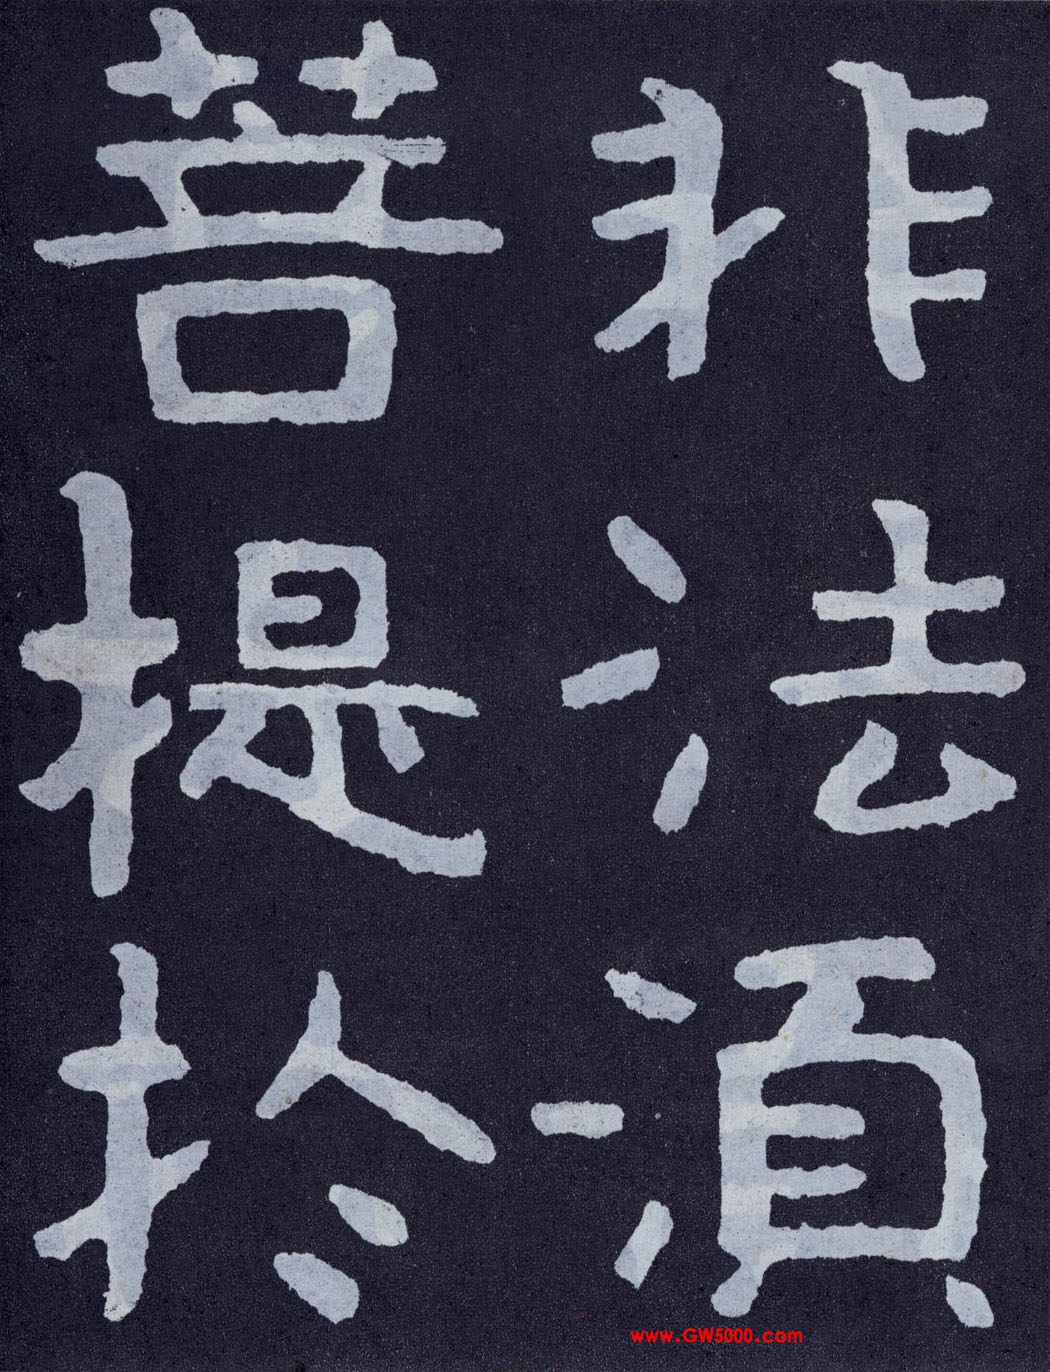 非法湏
菩提扵
www.GW5000.com